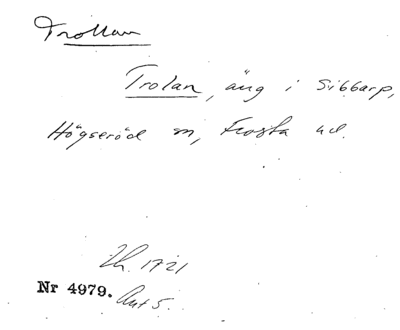 Trollan
Trolan, äng i Sibbarp,
Högseröd sn, Frosta hd.
Lh. 1721
Nr 4979. Ant 5.